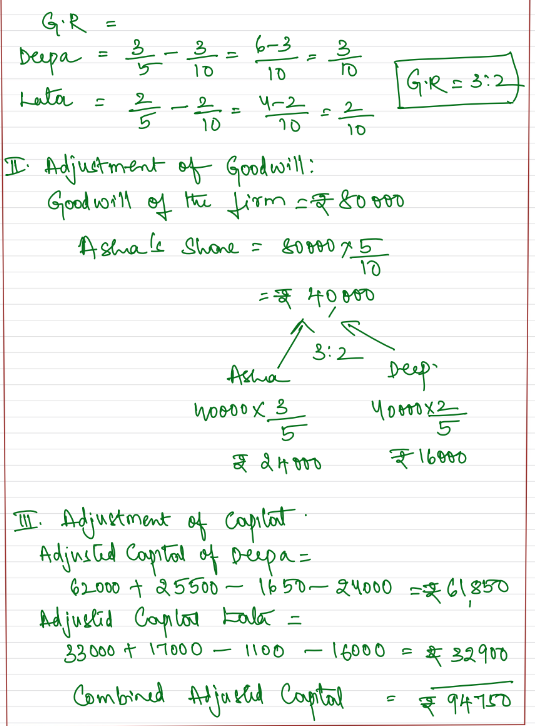 G.R =
Deepa = 3/5 - 3/10 = 6-3/10 = 3/10
Lata = 2/5 - 2/10 = 4-2/10 = 2/10
G.R = 3:2
II. Adjustment of Goodwill:
Goodwill of the firm = ₹ 80000
Asha's Share = 80000 x 5/10
= ₹ 40,000
3:2
Asha Deep.
40000 x 3/5 40000 x 2/5
₹ 24000 ₹ 16000
III. Adjustment of Capital.
Adjusted Capital of Deepa =
62000 + 25500 - 1650 - 24000 = ₹ 61,850
Adjusted Capital Lata =
33000 + 17000 - 1100 - 16000 = ₹ 32900
Combined Adjusted Capital = ₹ 94750